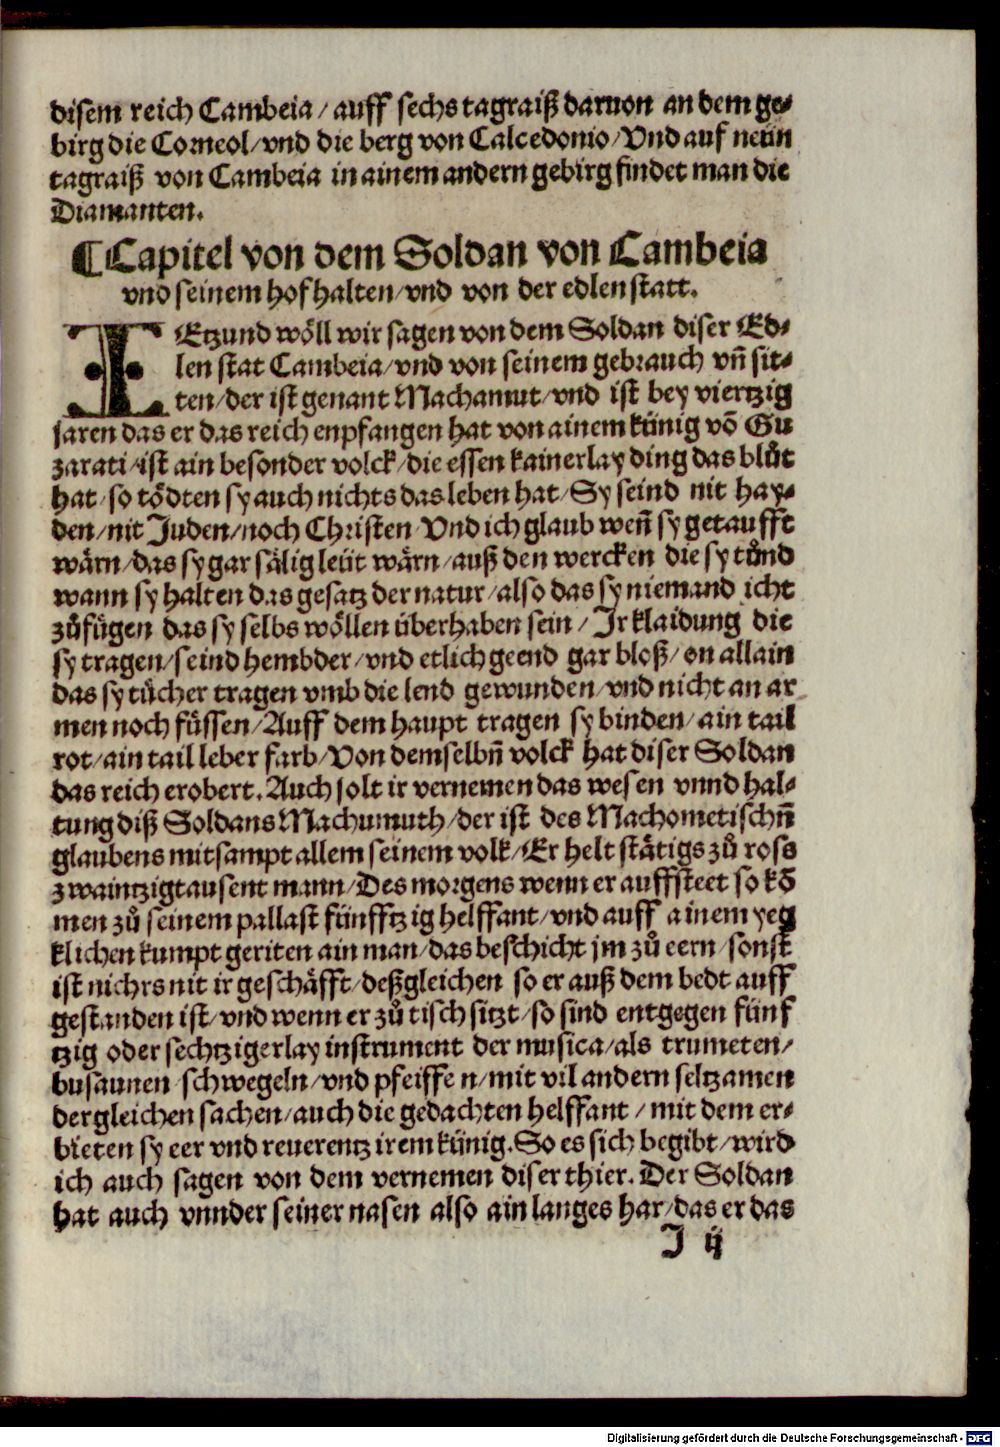 disem reich Cambeia / auff sechs tagraiß daruon an dem ge⸗
birg die Corneol / vnd die berg von Calcedonio / Vnd auf neün
tagraiß von Cambeia in ainem andern gebirg findet man die
Diamanten.
¶ Capitel von dem Soldan von Cambeia
vnd seinem hofhalten / vnd von der edlen statt.
IEtzund wöll wir sagen von dem Soldan diser Ed⸗
len stat Cambeia / vnd von seinem gebrauch vñ sit⸗
ten / der ist genant Machamut / vnd ist bey viertzig
jaren das er das reich enpfangen hat von ainem künig võ Gu
zarati / ist ain besonder volck / die essen kainerlay ding das blůt
hat / so tödten sy auch nichts das leben hat / Sy seind nit hay⸗
den / nit Juden / noch Christen / Vnd ich glaub weñ sy getaufft
wärn / das sy gar sälig leüt wärn / auß den wercken die sy tůnd
wann sy halten das gesatz der natur / also das sy niemand icht
zůfügen das sy selbs wöllen überhaben sein / Ir klaidung die
sy tragen / seind hembder / vnd etlich geend gar bloß / on allain
das sy tücher tragen vmb die lend gewunden / vnd nicht an ar
men noch füssen / Auff dem haupt tragen sy binden / ain tail
rot / ain tail leber farb / Von demselbñ volck hat diser Soldan
das reich erobert. Auch solt ir vernemen das wesen vnnd hal⸗
tung diß Soldans Machumuth / der ist des Machometischñ
glaubens mitsampt allem seinem volk / Er helt stätigs zů ross
zwaintzigtausent mann / Des morgens wenn er auffsteet so kõ
men zů seinem pallast fünfftzig helffant / vnd auff ainem yeg
klichen kumpt geriten ain man / das beschicht jm zů eern / sonst
ist nichts nit ir geschäfft / deßgleichen so er auß dem bedt auff
gestanden ist / vnd wenn er zů tisch sitzt / so sind entgegen fünf
tzig oder sechtzigerlay instrument der musica / als trumeten /
busaunen / schwegeln / vnd pfeiffen / mit vil andern seltzamen
dergleichen sachen / auch die gedachten helffant / mit dem er⸗
bieten sy eer vnd reuerentz irem künig. So es sich begibt / wird
ich auch sagen von dem vernemen diser thier. Der Soldan
hat auch vnnder seiner nasen also ain langes har / das er das
I ij
Digitalisierung gefördert durch die Deutsche Forschungsgemeinschaft - DFG